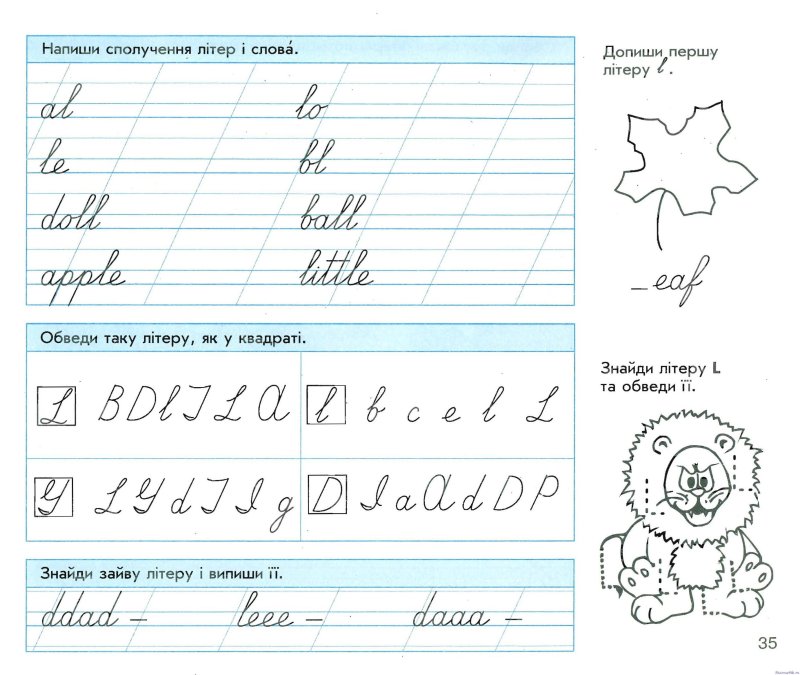 Напиши сполучення літер і слова́.
al lo
le bl
doll ball
apple little
Допиши першу
літеру l.
_eaf
Обведи таку літеру, як у квадраті.
L B D l I L A
l b c e l L
Y L Y d I I g
D I a A d D P
Знайди літеру L
та обведи її.
Знайди зайву літеру і випиши її.
ddad – leee – daaa –
35